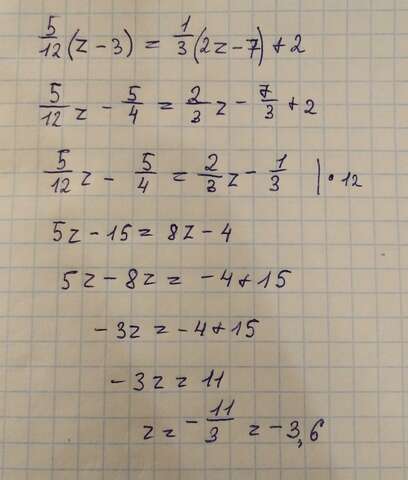 5/12(z - 3) = 1/3(2z - 7) + 2
5/12z - 5/4 = 2/3z - 7/3 + 2
5/12z - 5/4 = 2/3z - 1/3 | · 12
5z - 15 = 8z - 4
5z - 8z = -4 + 15
-3z = -4 + 15
-3z = 11
z = -11/3 = -3,6